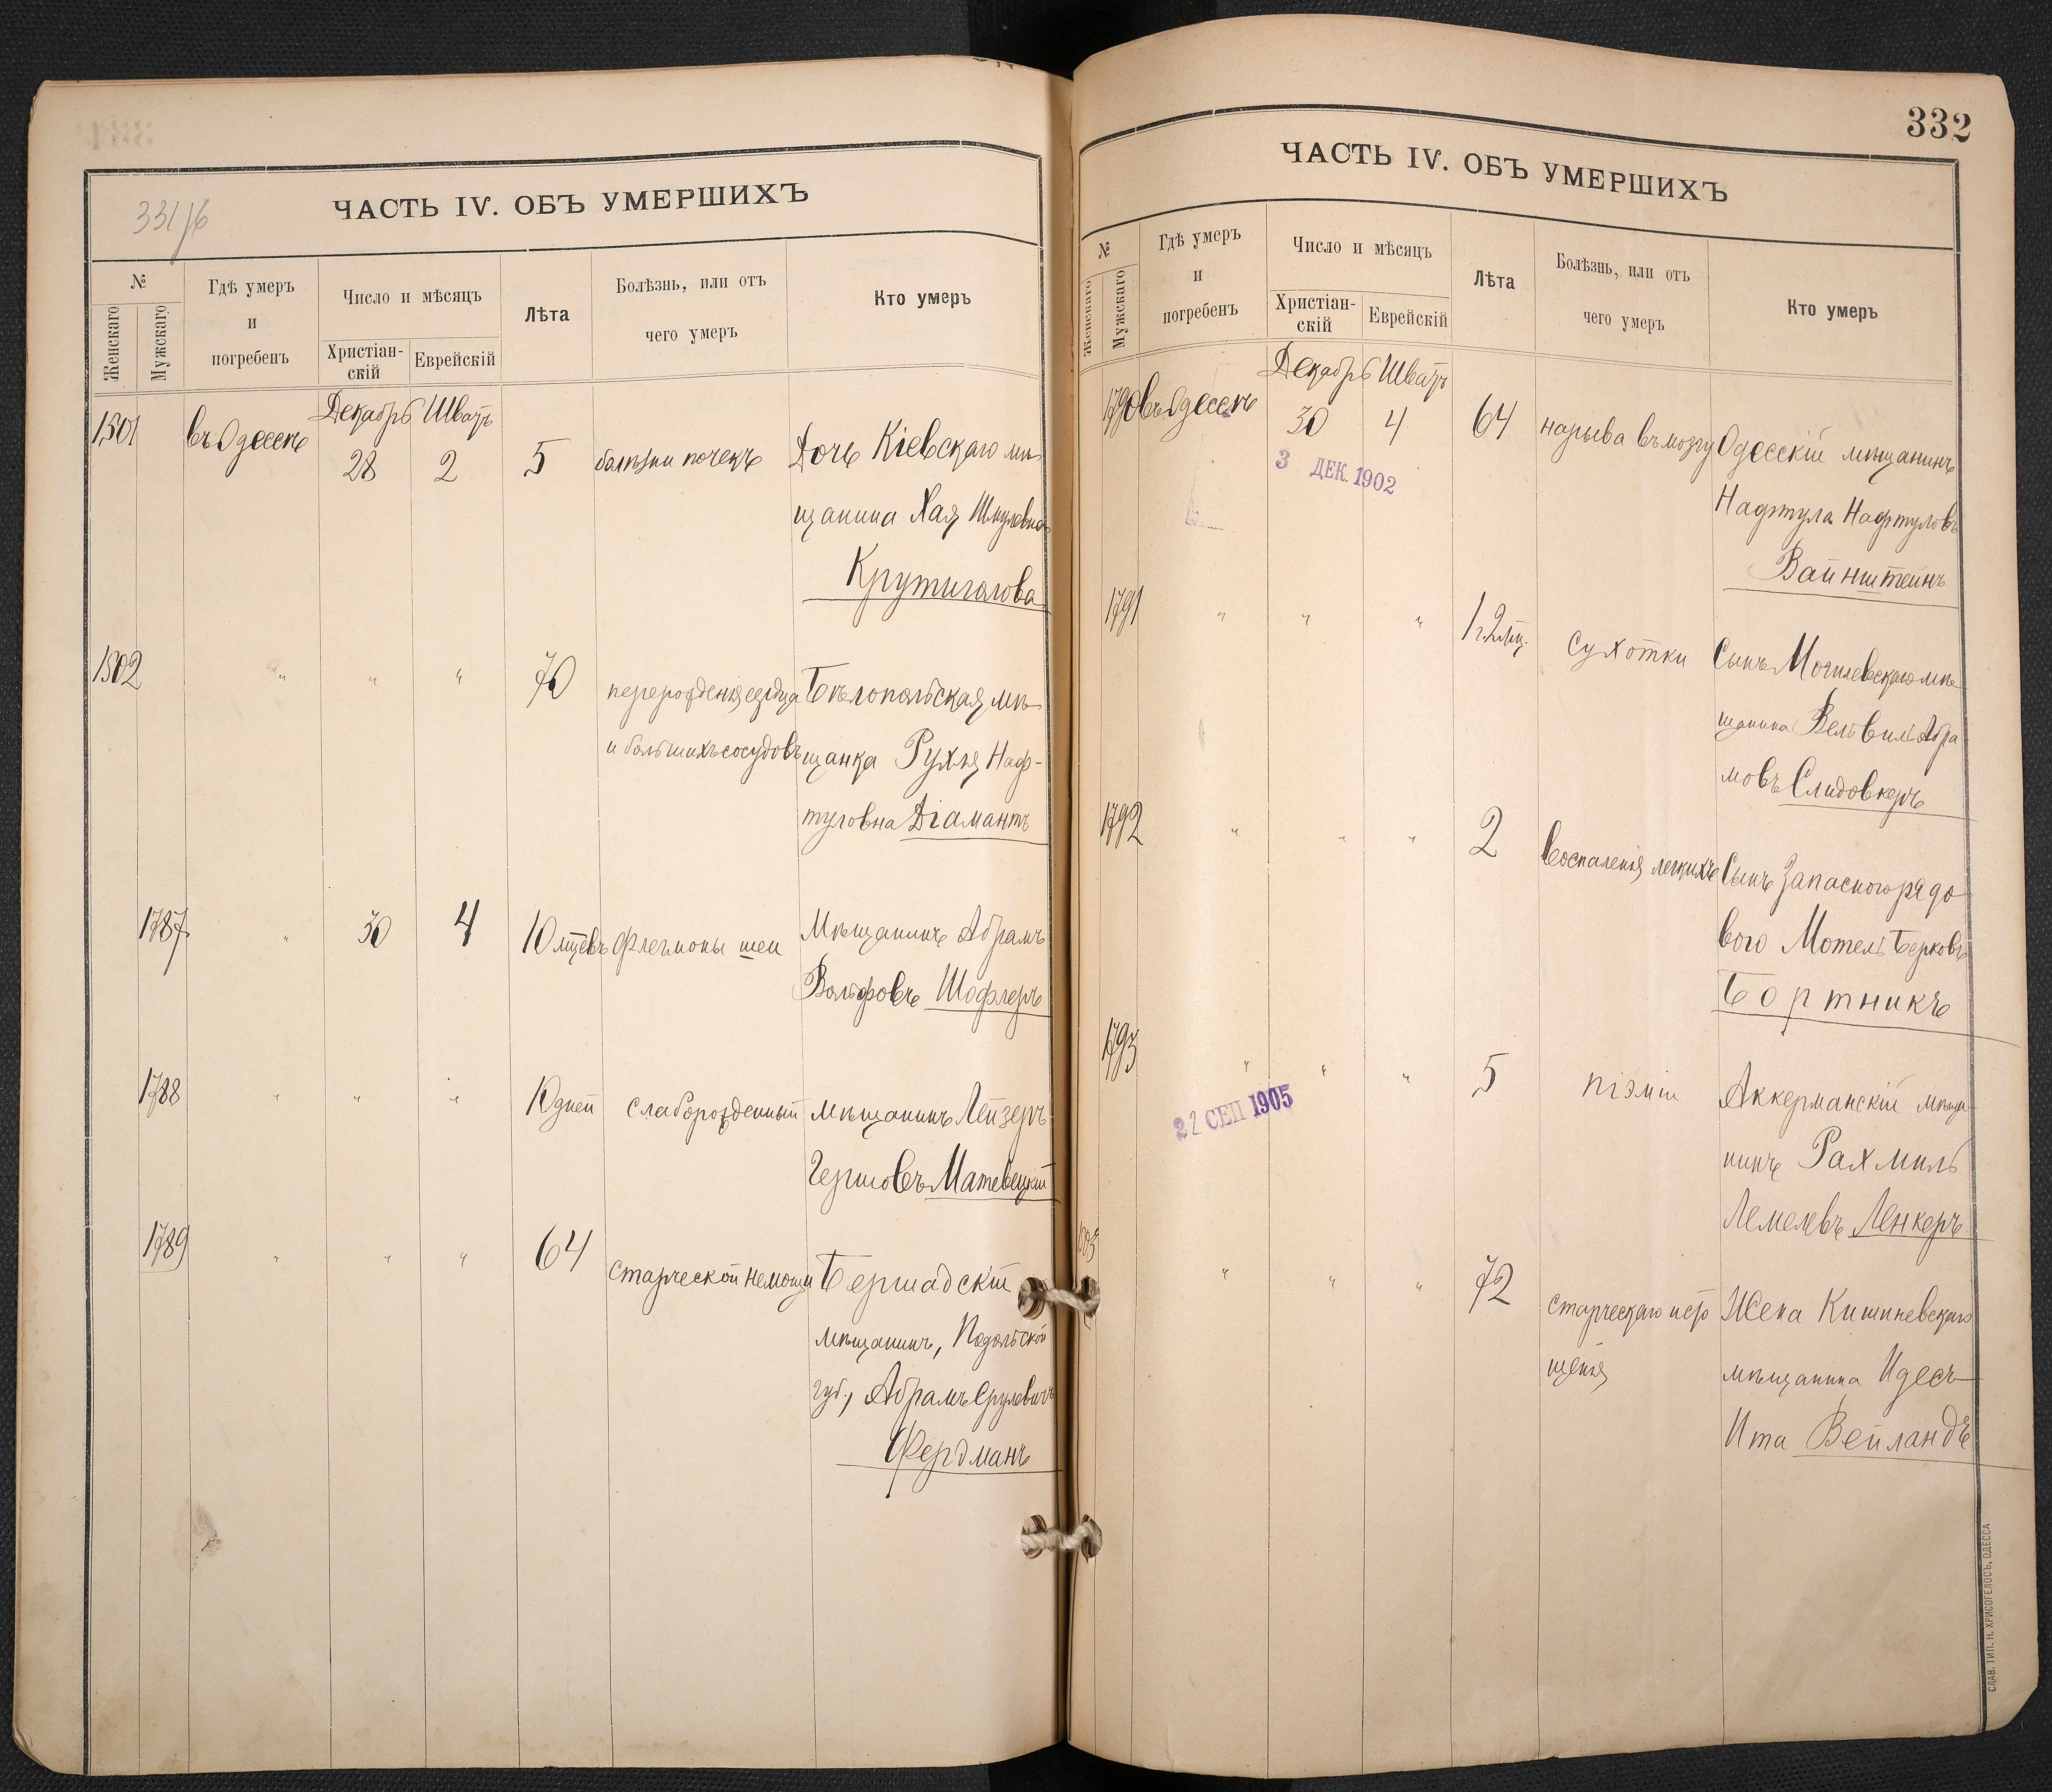 331 об
ЧАСТЬ IV. ОБЪ УМЕРШИХЪ
№
Женскаго
Мужскаго
Гдѣ умеръ
и
погребенъ
Число и мѣсяцъ
Христіан-
скій
Еврейскій
Лѣта
Болѣзнь, или отъ
чего умеръ
Кто умеръ
Декабрь Шватъ
1501 въ Одессѣ 28 2 5 болѣзни почекъ Дочь Кіевскаго мѣ-
щанина Хая Шмулевна
Крутиголова
1502 " " " 70 перерожденія сердца Бѣлопольская мѣ-
и большихъ сосудовъ щанка Рухля Наф-
туловна Діамантъ
1787 " 30 4 10 мцевъ флегмоны шеи Мѣщанинъ Абрамъ
Вольфовъ Шофлеръ
1788 " " " 10 дней слаборожденный мѣщанинъ Лейзеръ
Гершовъ Матевецкій
1789 " " " 64 старческой немощи Бершадскій
мѣщанинъ, Подольской
губ., Абрамъ Срулевичъ
Фердманъ
332
ЧАСТЬ IV. ОБЪ УМЕРШИХЪ
№
Женскаго
Мужскаго
Гдѣ умеръ
и
погребенъ
Число и мѣсяцъ
Христіан-
скій
Еврейскій
Лѣта
Болѣзнь, или отъ
чего умеръ
Кто умеръ
Декабрь Шватъ
1790 въ Одессѣ 30 4 64 нарыва въ мозгу Одесскій мѣщанинъ
3 ДЕК. 1902
Нафтула Нафтуловъ
Вайнштейнъ
1791 " " " 1 г. 2 мц. сухотки Сынъ Могилевскаго мѣ-
щанина Вельвиль Абра
мовъ Слидовкеръ
1792 " " " 2 воспаленія легкихъ Сынъ запаснаго рядо
вого Мотель Берковъ
Бортникъ
1793 " " " 5 піэміи Аккерманскій мѣща-
22 СЕП 1905
нинъ Рахмиль
Лемелевъ Ленкеръ
1503 " " " 72 старческаго исто Жена Кишиневскаго
щенія мѣщанина Идесъ-
Ита Вейландъ
СЛАВ. ТИП. Н. ХРИСОГЕЛОСЪ, ОДЕССА